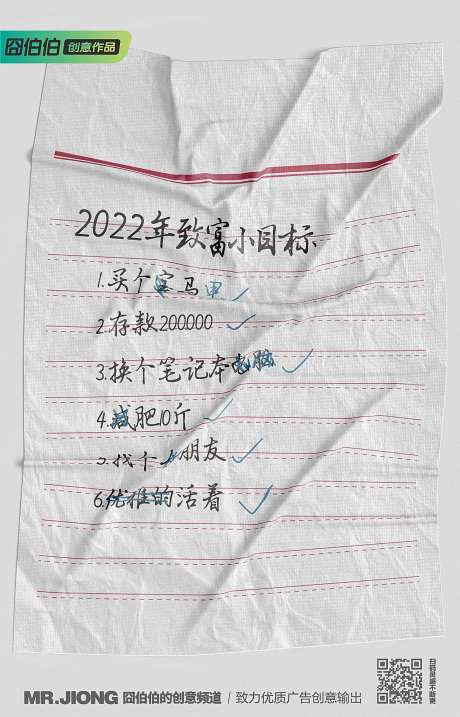 囧伯伯 创意作品
2022年致富小目标
1.买个宝马甲
2.存款200000
3.换个笔记本电脑
4.减肥10斤
5.找个女朋友
6.优雅的活着
MR.JIONG 囧伯伯的创意频道 / 致力优质广告创意输出